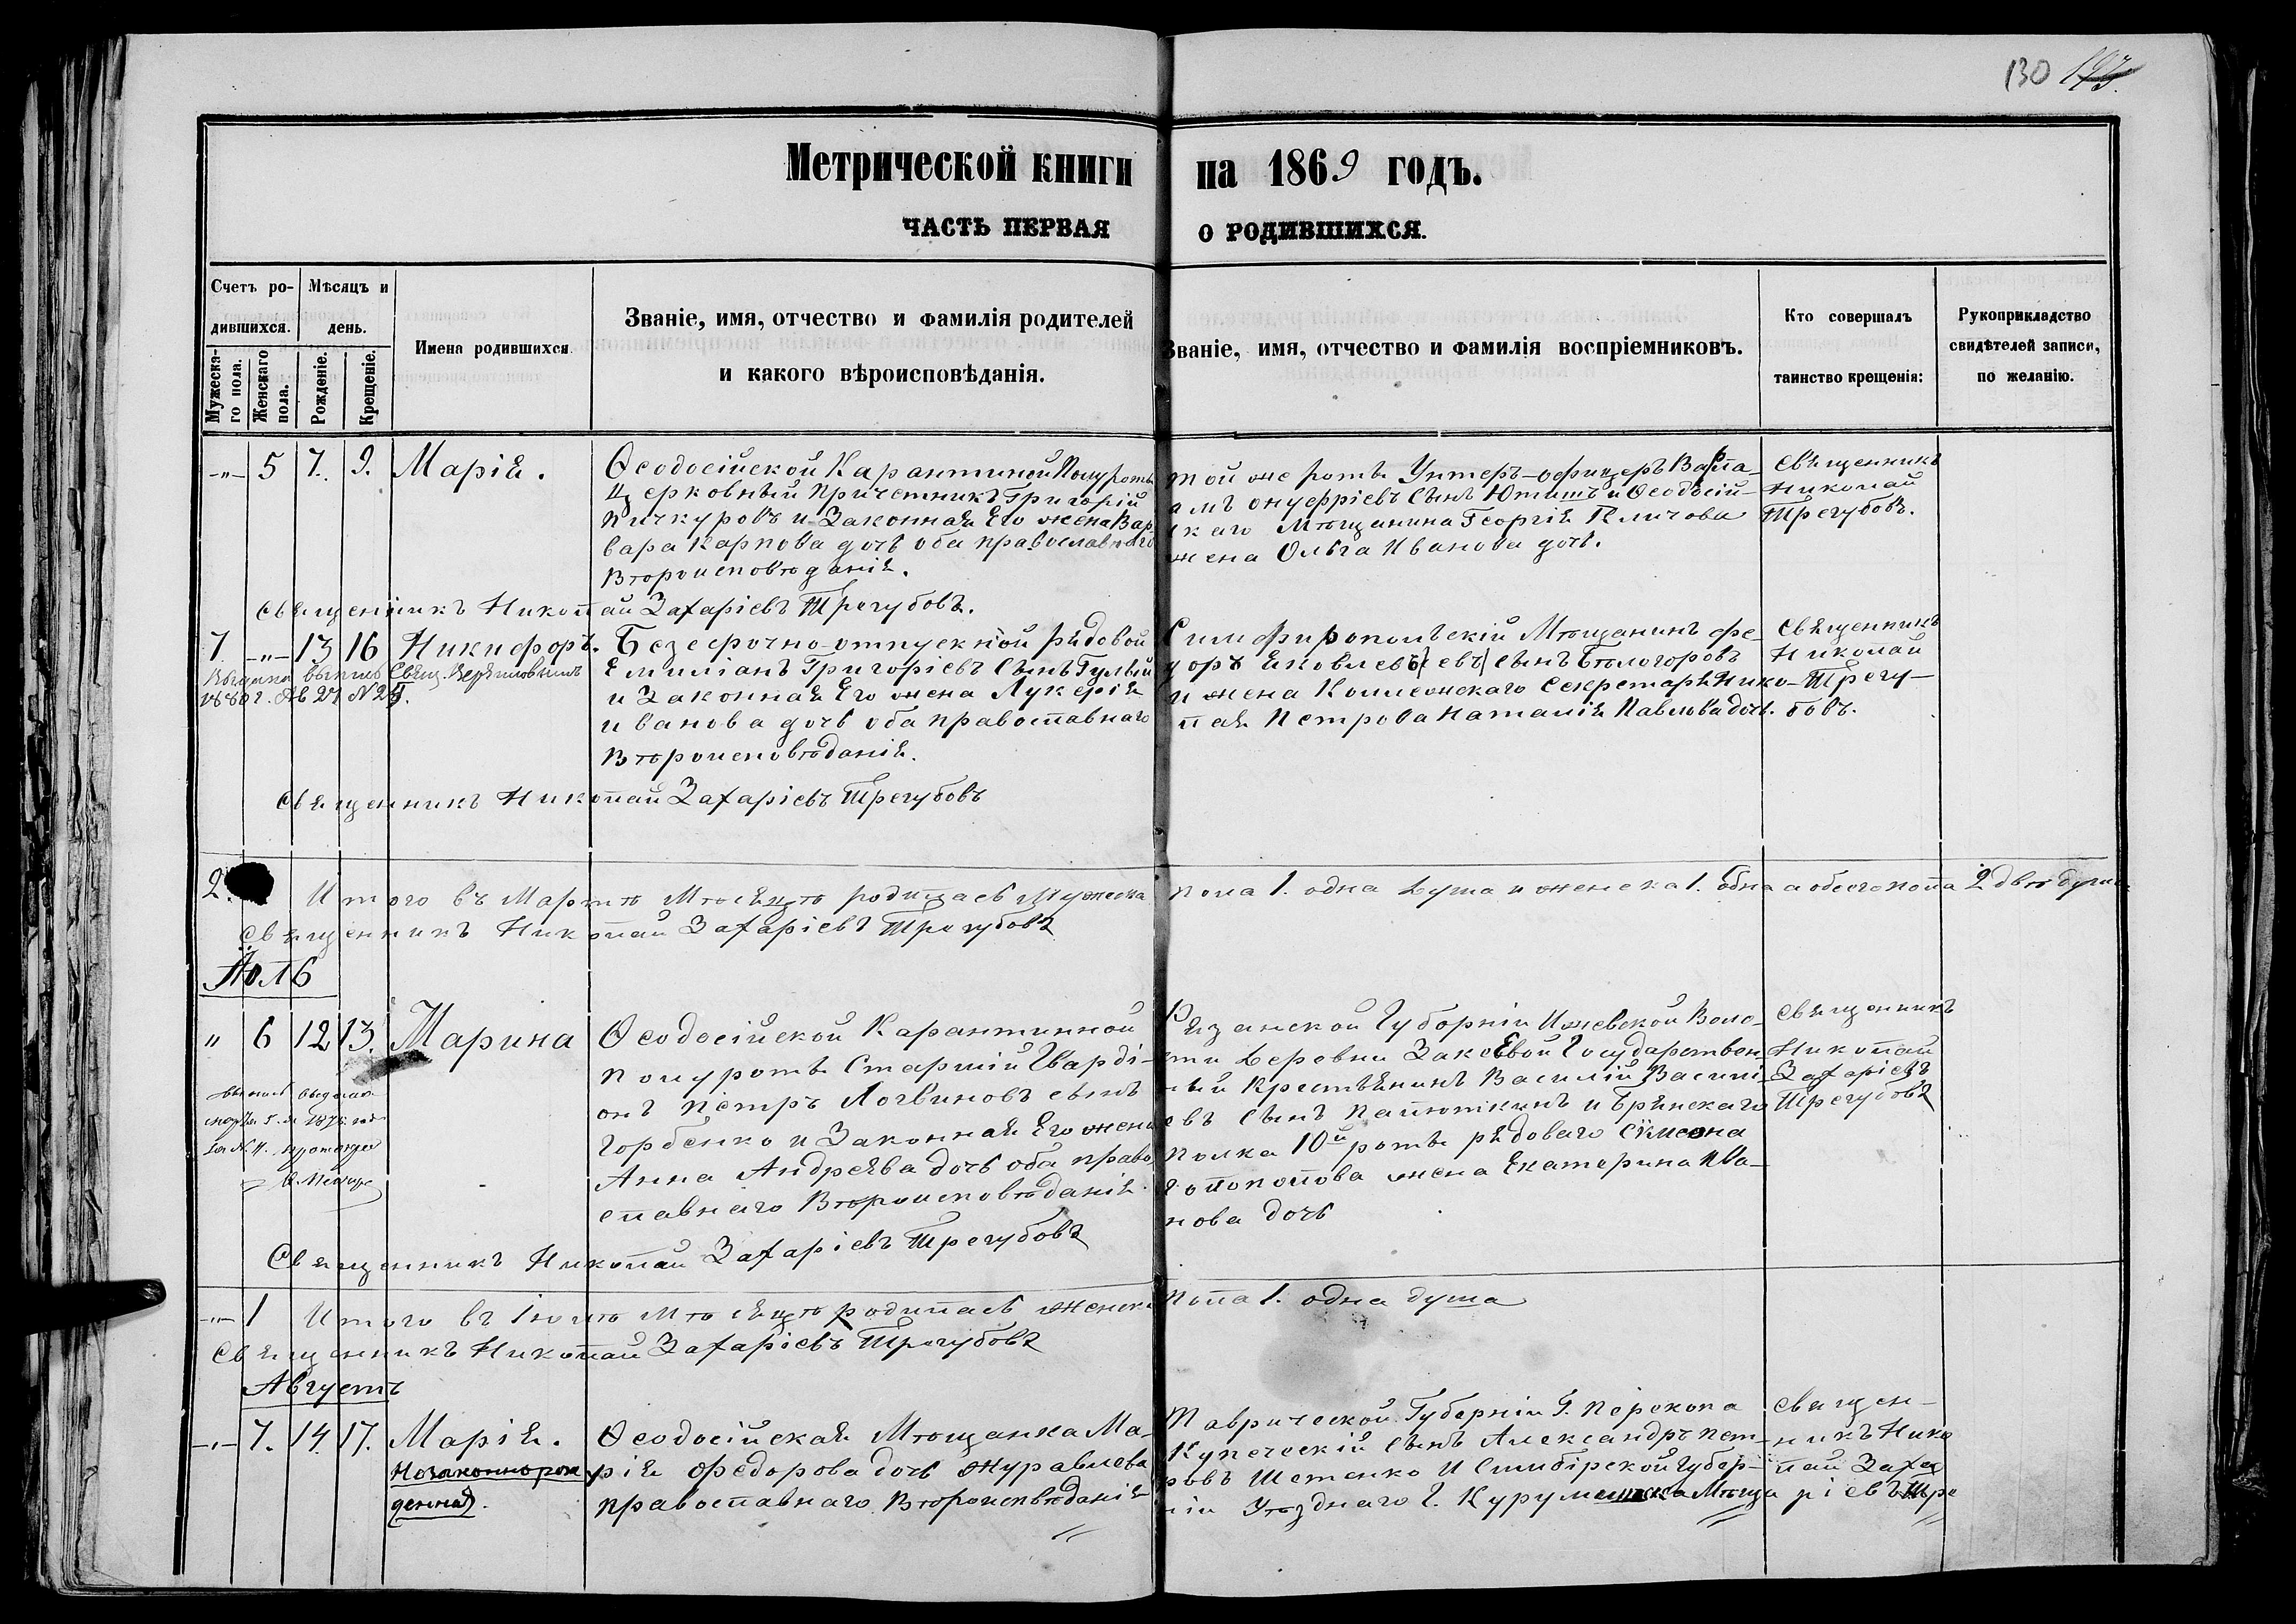 130
Метрической книги на 1869 годъ.
ЧАСТЬ ПЕРВАЯ О РОДИВШИХСЯ.
Счетъ родившихся.
Мужескаго пола.
Женскаго пола.
Мѣсяцъ и день.
Рожденіе.
Крещеніе.
Имена родившихся
Званіе, имя, отчество и фамилія родителей
и какого вѣроисповѣданія.
Званіе, имя, отчество и фамилія воспріемниковъ.
Кто совершалъ
таинство крещенія:
Рукоприкладство
свидѣтелей записи,
по желанію.
-„- 5 7. 9. Марія.
Ѳеодосійской Карантинной Полуроты
Церковный Причетникъ Григорій
Пичкуровъ и Законная Его жена Вар
вара Карпова дочь оба православнаго
Вѣроисповѣданія.
той же роты Унтеръ-офицеръ Варла
амъ онуфріевъ сынъ Ютишъ и Ѳеодосій-
скаго Мѣщанина Георгія Кличова
жена Ольга Иванова дочь.
Священникъ
Николай
Трегубовъ.
Священникъ Николай Захаріевъ Трегубовъ.
7. -„- 13 16 Никифоръ.
Безсрочно-отпускной рядовой
Емиліанъ Григоріевъ сынъ Гулый
и Законная Его жена Лукерія
иванова дочь оба православнаго
Вѣроисповѣданія.
Симферопольскій Мѣщанинъ фе-
доръ Яковлевъ (евъ) сынъ Бѣлогоровъ
и жена Коллежскаго Секретаря Нико-
лая Петрова Наталія Павлова дочь.
Священникъ
Николай
Трегу-
бовъ.
Священникъ Николай Захаріевъ Трегубовъ
2. Итого въ Мартѣ Мѣсяцѣ родилась мужеска пола 1. одна душа и женска 1. одна а обоего пола 2 двѣ души
Священникъ Николай Захаріевъ Трегубовъ
Іюль
„ 6 12 13. Марина
Ѳеодосійской Карантинной
полуроты Старшій Гварді-
онъ Петръ Логвиновъ сынъ
Горбенко и Законная Его жена
Анна Андреева дочь оба право
славнаго Вѣроисповѣданія
Рязанской Губерніи Ижевской Воло-
сти деревни Государствен
ный крестьянинъ Василій Василі-
евъ сынъ и Брянскаго
полка 10й роты рядоваго Сѵмеона
жена Екатерина Ива-
нова дочь
Священникъ
Николай
Захаріевъ
Трегубовъ
Священникъ Николай Захаріевъ Трегубовъ
-„- 1 Итого въ Іюлѣ Мѣсяцѣ родилась женска пола 1. одна душа
Священникъ Николай Захаріевъ Трегубовъ
Августъ
-„- 7. 14. 17. Марія.
Незаконнорож
денная.
Ѳеодосійская Мѣщанка Ма-
рія Федорова дочь Журавлева
православнаго Вѣроисповѣданія
Таврической Губерніи Г. Перекопа
Купеческій сынъ Александръ Пет-
ровъ Шетенко и Симбирской Губер-
ніи Уѣзднаго Г. Мѣща
Священ-
никъ Нико
лай Заха
ріевъ Тре